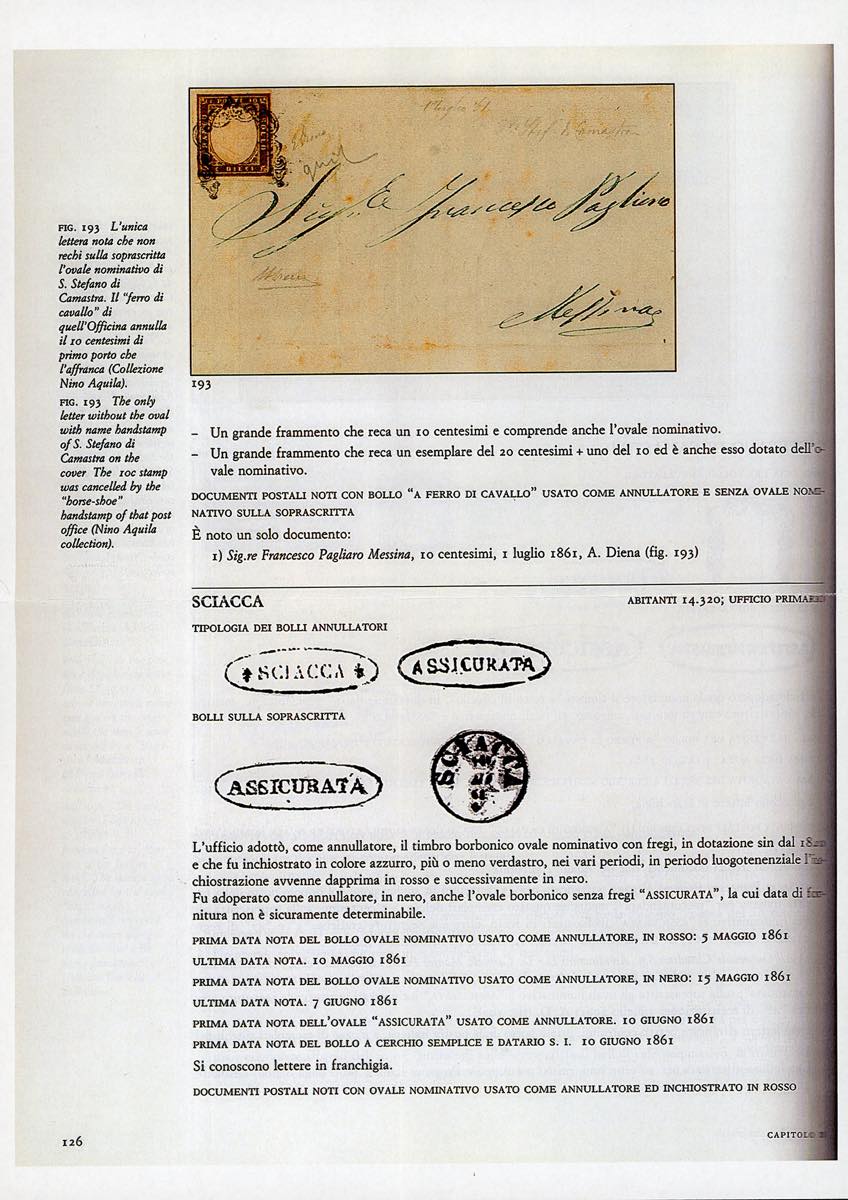 FIG. 193 L'unica
lettera nota che non
rechi sulla soprascritta
l'ovale nominativo di
S. Stefano di
Camastra. Il "ferro di
cavallo" di
quell'Officina annulla
il 10 centesimi di
primo porto che
l'affranca (Collezione
Nino Aquila).
FIG. 193 The only
letter without the oval
with name handstamp
of S. Stefano di
Camastra on the
cover The 10c stamp
was cancelled by the
"horse-shoe"
handstamp of that post
office (Nino Aquila
collection).
Francesco Pagliaro
Messina
193
– Un grande frammento che reca un 10 centesimi e comprende anche l'ovale nominativo.
– Un grande frammento che reca un esemplare del 20 centesimi + uno del 10 ed è anche esso dotato dell'o-
vale nominativo.
DOCUMENTI POSTALI NOTI CON BOLLO "A FERRO DI CAVALLO" USATO COME ANNULLATORE E SENZA OVALE NOMI-
NATIVO SULLA SOPRASCRITTA
È noto un solo documento:
1) Sig.re Francesco Pagliaro Messina, 10 centesimi, 1 luglio 1861, A. Diena (fig. 193)
SCIACCA ABITANTI 14.320; UFFICIO PRIMARIO
TIPOLOGIA DEI BOLLI ANNULLATORI
SCIACCA ASSICURATA
BOLLI SULLA SOPRASCRITTA
ASSICURATA SCIACCA
L'ufficio adottò, come annullatore, il timbro borbonico ovale nominativo con fregi, in dotazione sin dal
e che fu inchiostrato in colore azzurro, più o meno verdastro, nei vari periodi, in periodo luogotenenziale l'in-
chiostrazione avvenne dapprima in rosso e successivamente in nero.
Fu adoperato come annullatore, in nero, anche l'ovale borbonico senza fregi "ASSICURATA", la cui data di for-
nitura non è sicuramente determinabile.
PRIMA DATA NOTA DEL BOLLO OVALE NOMINATIVO USATO COME ANNULLATORE, IN ROSSO: 5 MAGGIO 1861
ULTIMA DATA NOTA. 10 MAGGIO 1861
PRIMA DATA NOTA DEL BOLLO OVALE NOMINATIVO USATO COME ANNULLATORE, IN NERO: 15 MAGGIO 1861
ULTIMA DATA NOTA. 7 GIUGNO 1861
PRIMA DATA NOTA DELL'OVALE "ASSICURATA" USATO COME ANNULLATORE. 10 GIUGNO 1861
PRIMA DATA NOTA DEL BOLLO A CERCHIO SEMPLICE E DATARIO S. I. 10 GIUGNO 1861
Si conoscono lettere in franchigia.
DOCUMENTI POSTALI NOTI CON OVALE NOMINATIVO USATO COME ANNULLATORE ED INCHIOSTRATO IN ROSSO
126 CAPITOLO